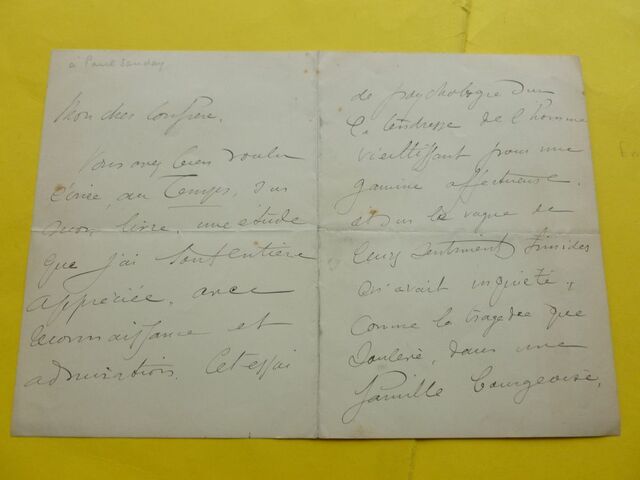 à Paul Souday
Mon cher Confrère,
Vous avez bien voulu
écrire, au Temps, sur
mon livre, une étude
que j'ai tout entière
appréciée, avec
reconnaissance et
admiration. Cet essai
de psychologie sur
la tendresse de l'homme
vieillissant pour une
gamine affectueuse,
et sur le vague de
leurs sentiments timides
m'avait inquiété,
comme la tragédie que
soulève, dans une
famille bourgeoise,